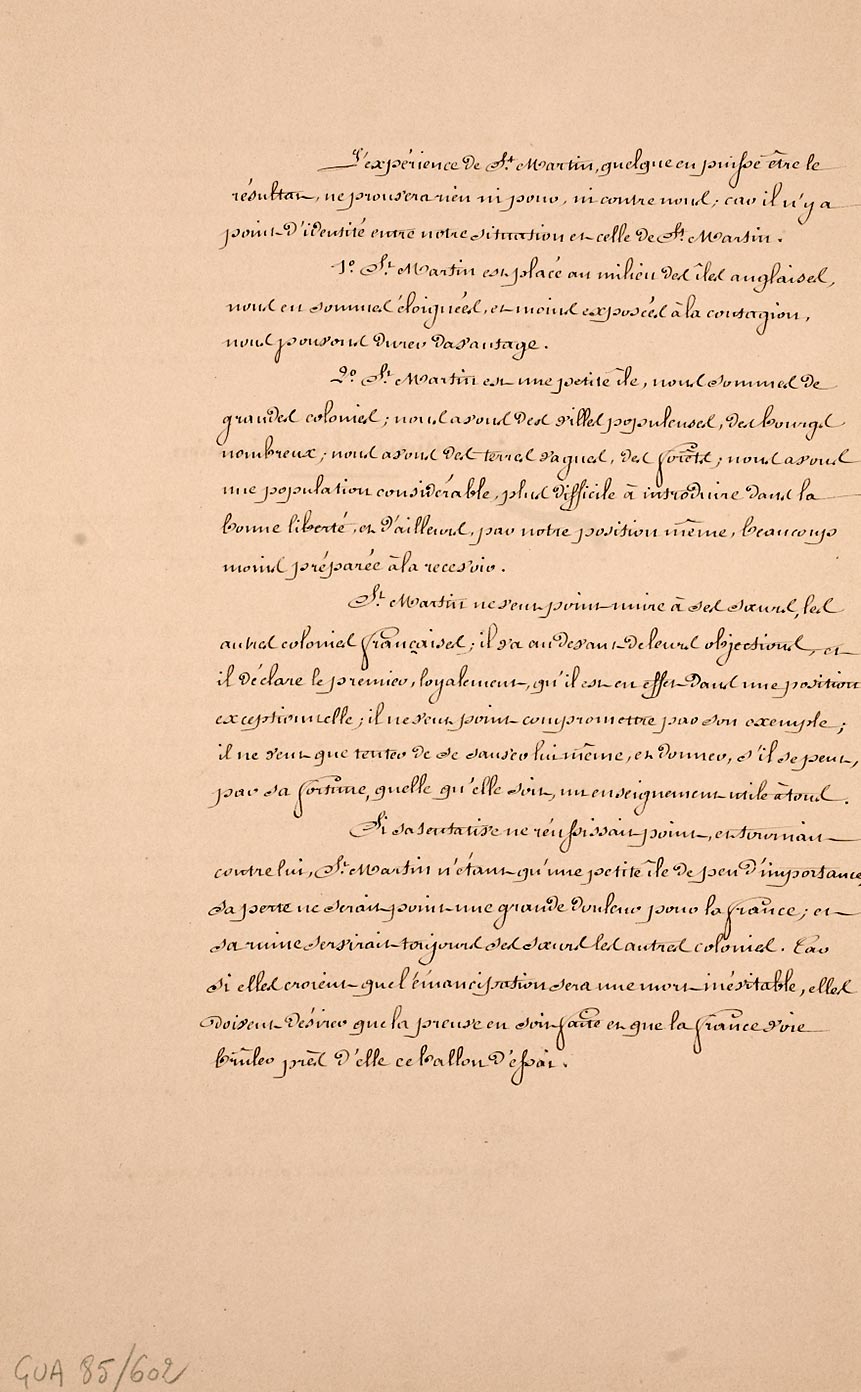 L'expérience de St Martin, quelque en puisse être le
résultat, ne prouvera rien ni pour, ni contre nous; car il n'y a
point d'identité entre notre situation et celle de St Martin.
1o. St Martin est placé au milieu des îles anglaises,
nous en sommes éloignés, et moins exposés à la contagion,
nous pouvons durer davantage.
2o. St Martin est une petite île, nous sommes de
grandes colonies; nous avons des villes populeuses, des bourgs
nombreux; nous avons des terres vagues, des forêts; nous avons
une population considérable, plus difficile à introduire dans la
bonne liberté, et d'ailleurs, par notre position même, beaucoup
moins préparée à la recevoir.
St Martin ne veut point nuire à ses sœurs, les
autres colonies françaises; il va au devant de leurs objections, et
il déclare le premier, loyalement, qu'il est en effet dans une position
exceptionnelle; il ne veut point compromettre par son exemple;
il ne veut que tenter de se sauver lui même, et donner, s'il se peut,
par sa fortune, quelle qu'elle soit, un enseignement utile à tous.
Si sa tentative ne réussissait point, et tournait
contre lui, St Martin n'étant qu'une petite île de peu d'importance
sa perte ne serait point une grande douleur pour la france; et
sa ruine servirait toujours ses sœurs les autres colonies. Car
si elles croient que l'émancipation sera une mort inévitable, elles
doivent désirer que la preuve en soit faite et que la france voie
brûler près d'elle ce ballon d'essai.
GUA 85/602